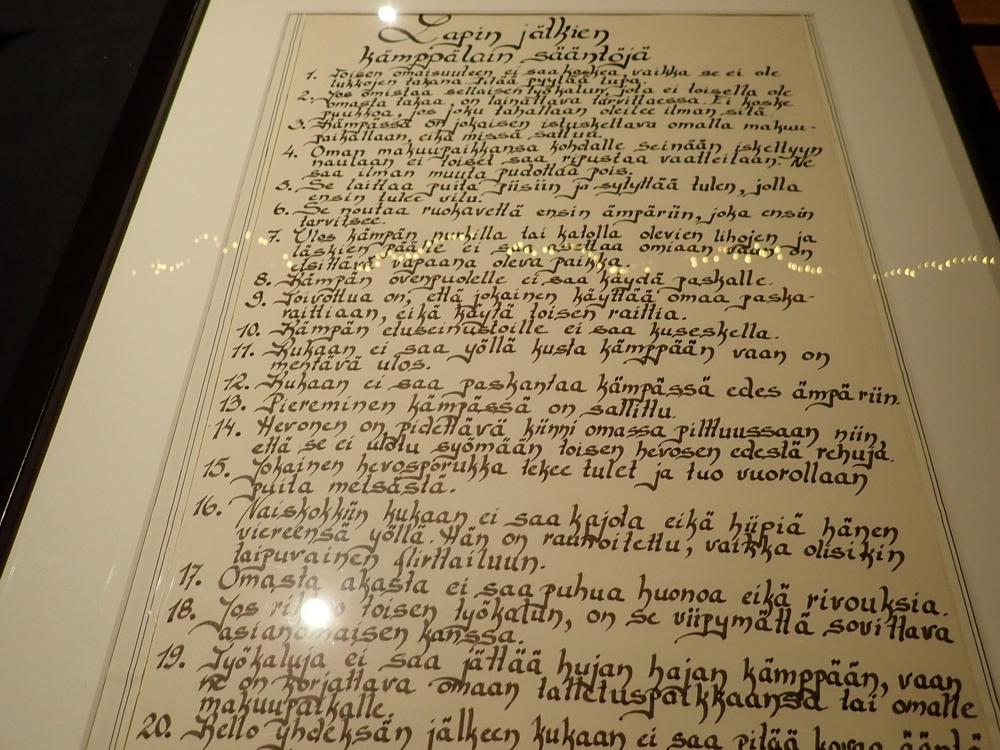 Lapin jätkien
kämppälain sääntöjä
1. Toisen omaisuuteen ei saa koskea vaikka se ei ole
lukkojen takana. Pitää pyytää lupa.
2. Jos omistaa sellaisen työkalun, jota ei toisella ole
omasta takaa, on lainattava tarvittaessa. Ei koske
puukkoa, jos joku tahallaan oleilee ilman sitä.
3. Kämpässä on jokaisen istuskeltava omalla makuu-
paikallaan, eikä missä sattuu.
4. Oman makuupaikkansa kohdalle seinään iskettyyn
naulaan ei toiset saa ripustaa vaatteitaan. Ne
saa ilman muuta pudottaa pois.
5. Se laittaa puita piisiin ja sytyttää tulen, jolla
ensin tulee vilu.
6. Se noutaa ruokavettä ensin ämpäriin, joka ensin
tarvitsee.
7. Ulos kämpän nurkilla tai katolla olevien lihojen ja
läskien päälle ei saa asettaa omiaan vaan on
etsittävä vapaana oleva paikka.
8. Kämpän ovenpuolelle ei saa käydä paskalle.
9. Toivottua on, että jokainen käyttää omaa paska-
raittiaan, eikä käytä toisen raittia.
10. Kämpän etuseinustoille ei saa kuseskella.
11. Kukaan ei saa yöllä kusta kämppään vaan on
mentävä ulos.
12. Kukaan ei saa paskantaa kämpässä edes ämpäriin.
13. Piereminen kämpässä on sallittu.
14. Hevonen on pidettävä kiinni omassa pilttuussaan niin,
että se ei ulotu syömään toisen hevosen edestä rehuja.
15. Jokainen hevosporukka tekee tulet ja tuo vuorollaan
puita metsästä.
16. Naiskokkiin kukaan ei saa kajota eikä hiipiä hänen
viereensä yöllä. Hän on rauhoitettu, vaikka olisikin
taipuvainen flirttailuun.
17. Omasta akasta ei saa puhua huonoa eikä rivouksia.
18. Jos toisen työkalun, on se viipymättä sovittava
asianomaisen kanssa.
19. Työkaluja ei saa jättää hujan hajan kämppään, vaan
ne on korjattava omaan talletuspaikkaansa tai omalle
makuupaikalle.
20. Kello yhdeksän jälkeen kukaan ei saa pitää kovaa ääntä